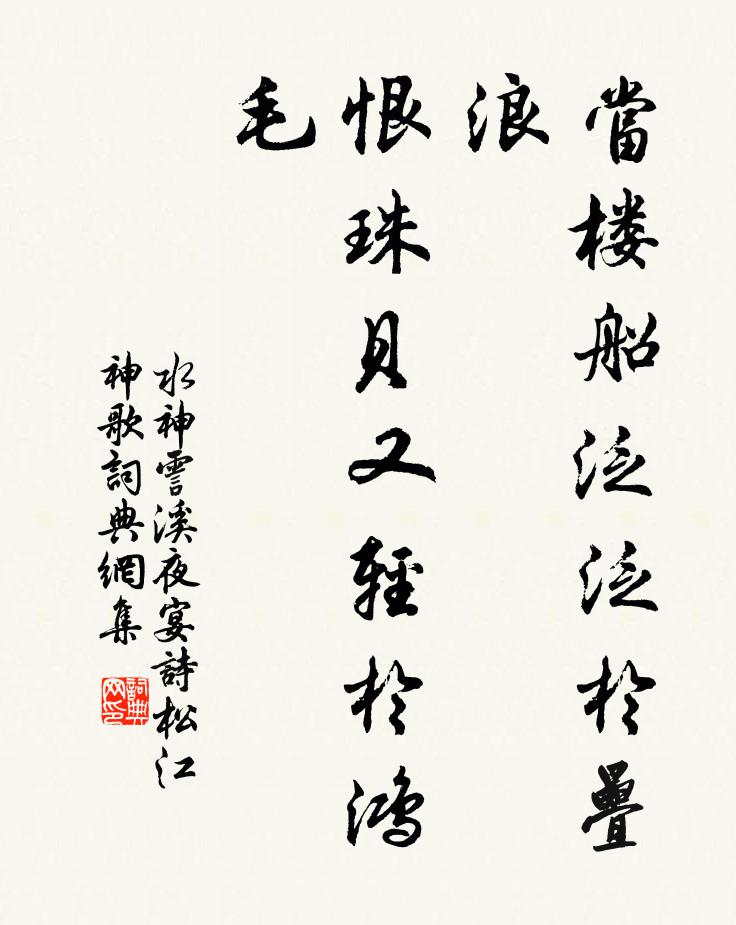 當楼船泛泛於疊
浪
恨珠貝又輕於鴻
毛
水神雲溪夜宴詩松江
神歌詞典網集
詞典网印